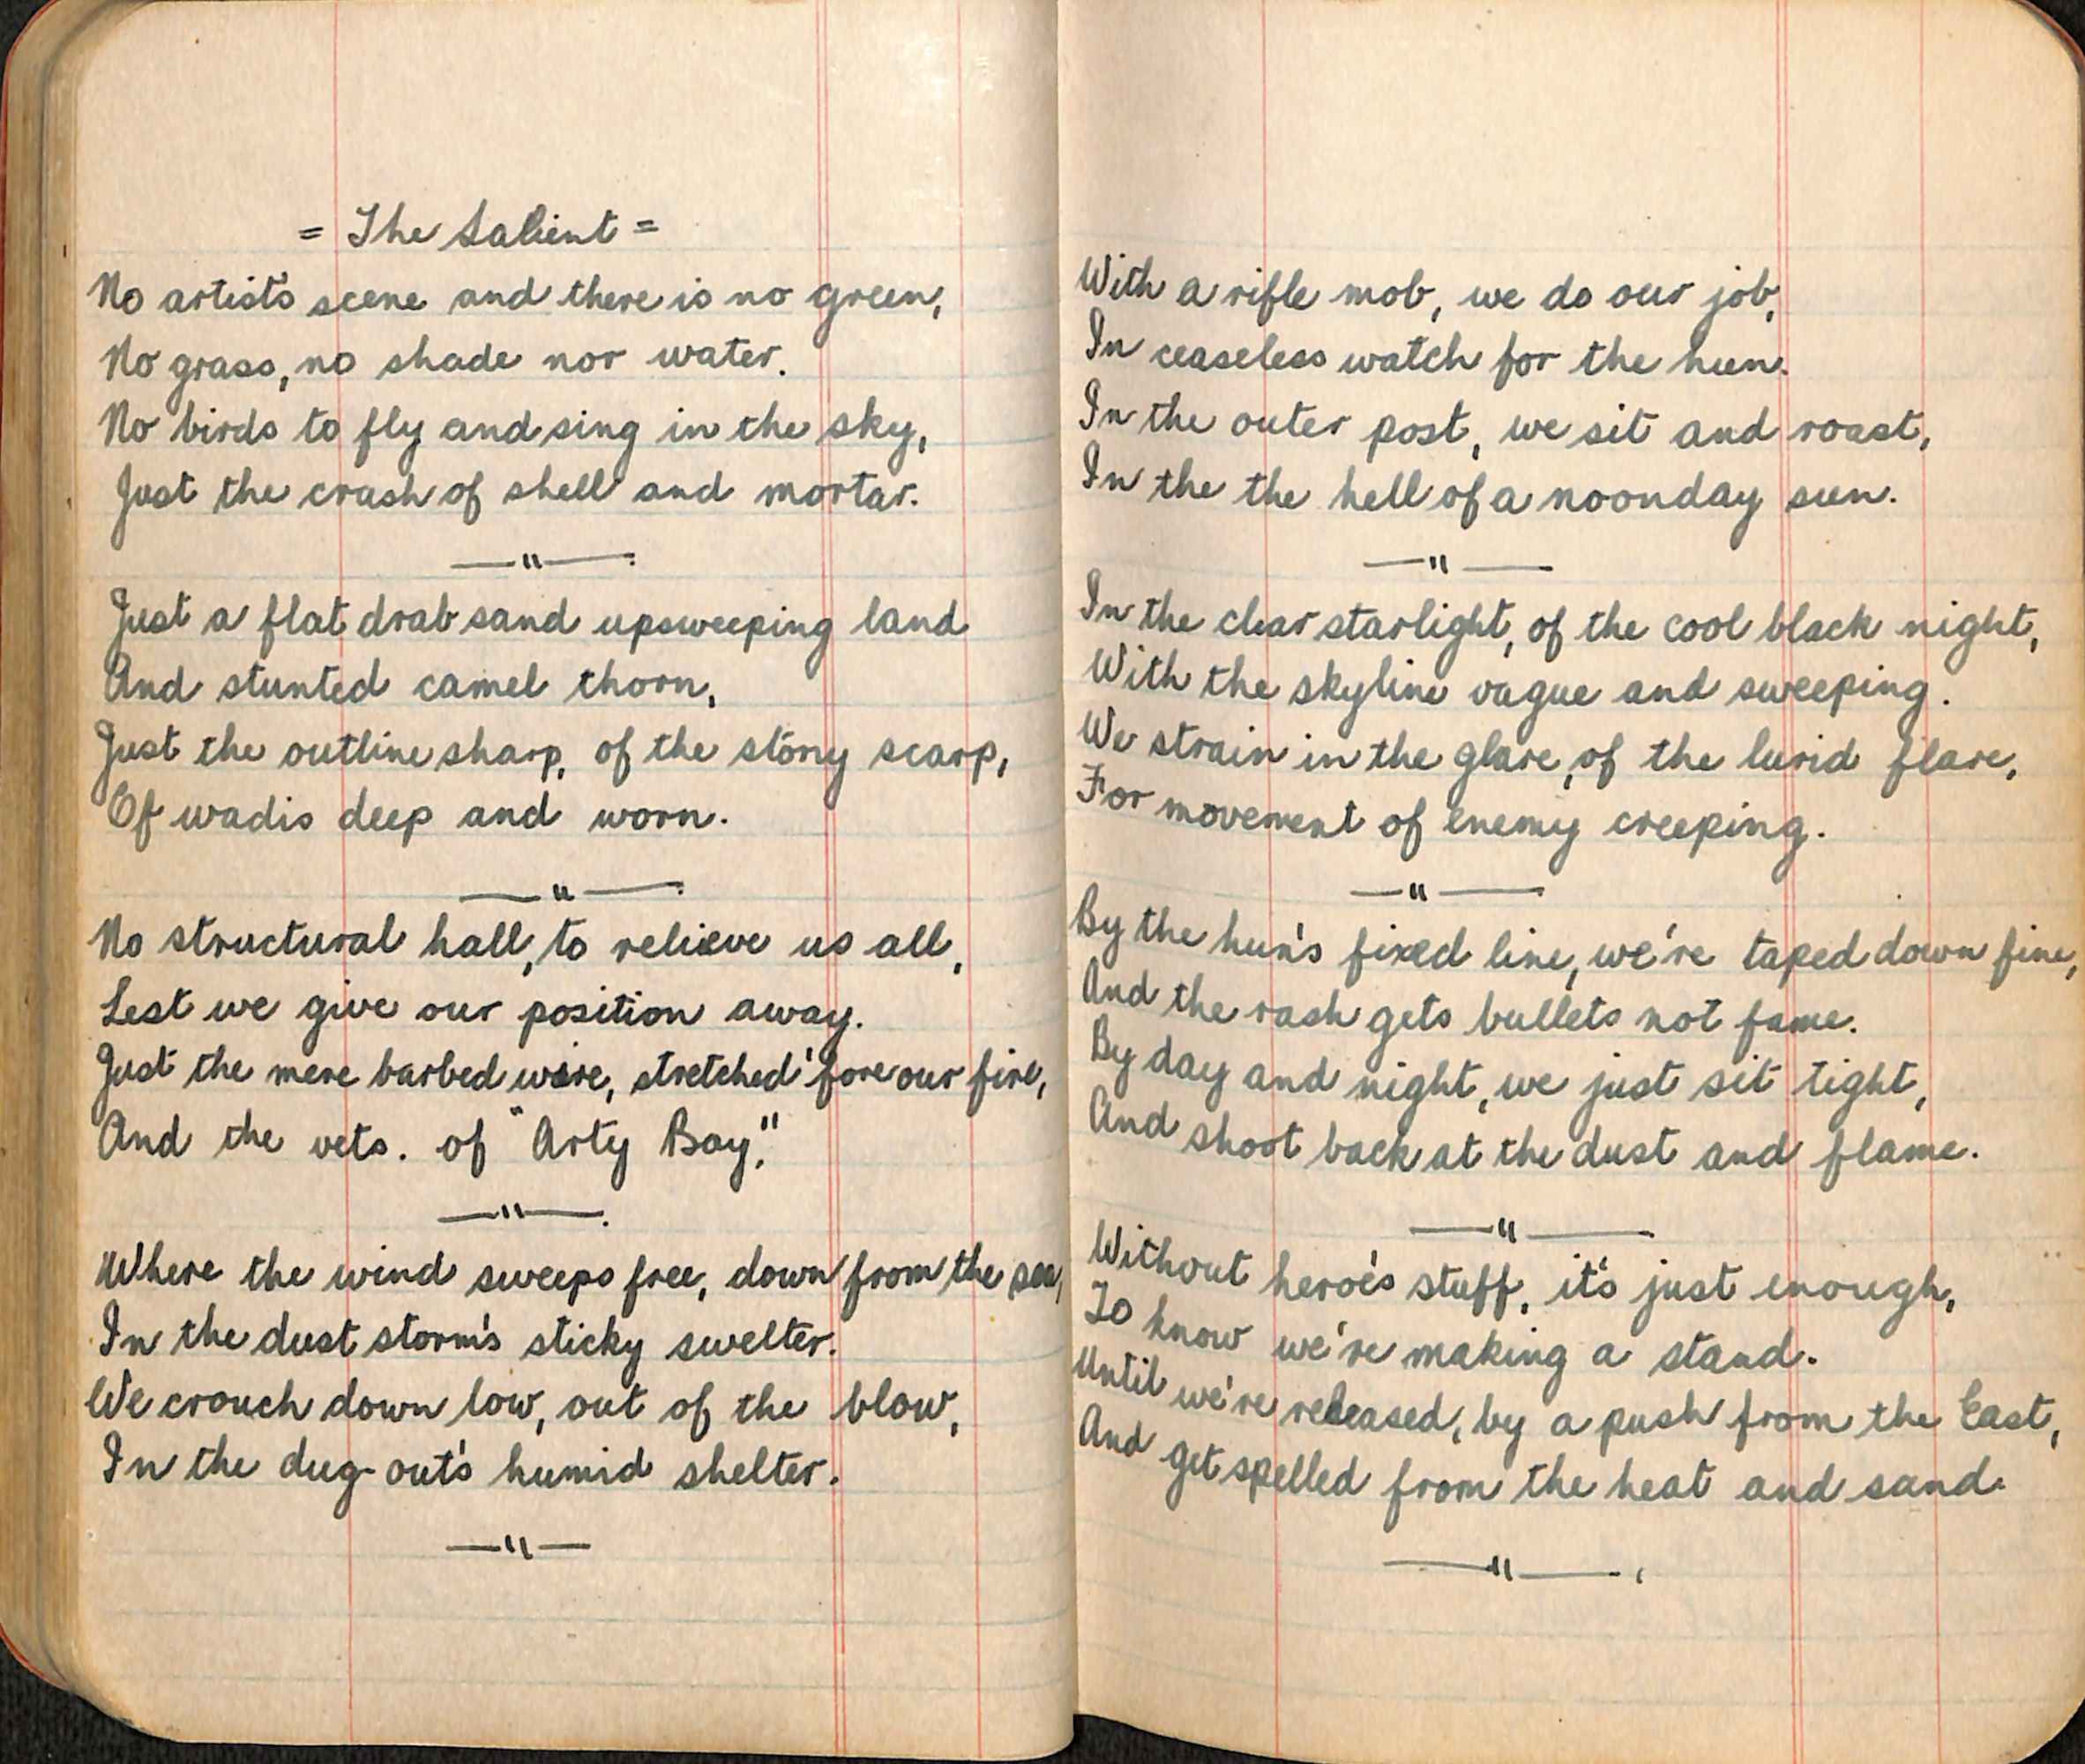 = The Salient =
No artist's scene and there is no green,
No grass, no shade nor water.
No birds to fly and sing in the sky,
Just the crash of shell and mortar.
—"—
Just a flat drab sand upsweeping land
And stunted camel thorn,
Just the outline sharp, of the stony scarp,
Of wadis deep and worn.
—"—
No structural hall, to relieve us all,
Lest we give our position away.
Just the mere barbed wire, stretched 'fore our fire,
And the vets. of "Arty Bay."
—"—
Where the wind sweeps free, down from the sea,
In the dust storm's sticky swelter.
We crouch down low, out of the blow,
In the dug-out's humid shelter.
—"—
With a rifle mob, we do our job,
In ceaseless watch for the hun.
In the outer post, we sit and roast,
In the the hell of a noonday sun.
—"—
In the clear starlight, of the cool black night,
With the skyline vague and sweeping.
We strain in the glare, of the lurid flare,
For movement of enemy creeping.
—"—
By the hun's fixed line, we're taped down fine,
And the rash gets bullets not fame.
By day and night, we just sit tight,
And shoot back at the dust and flame.
—"—
Without heroe's stuff, it's just enough,
To know we're making a stand.
Until we're released, by a push from the East,
And get spelled from the heat and sand.
—"—